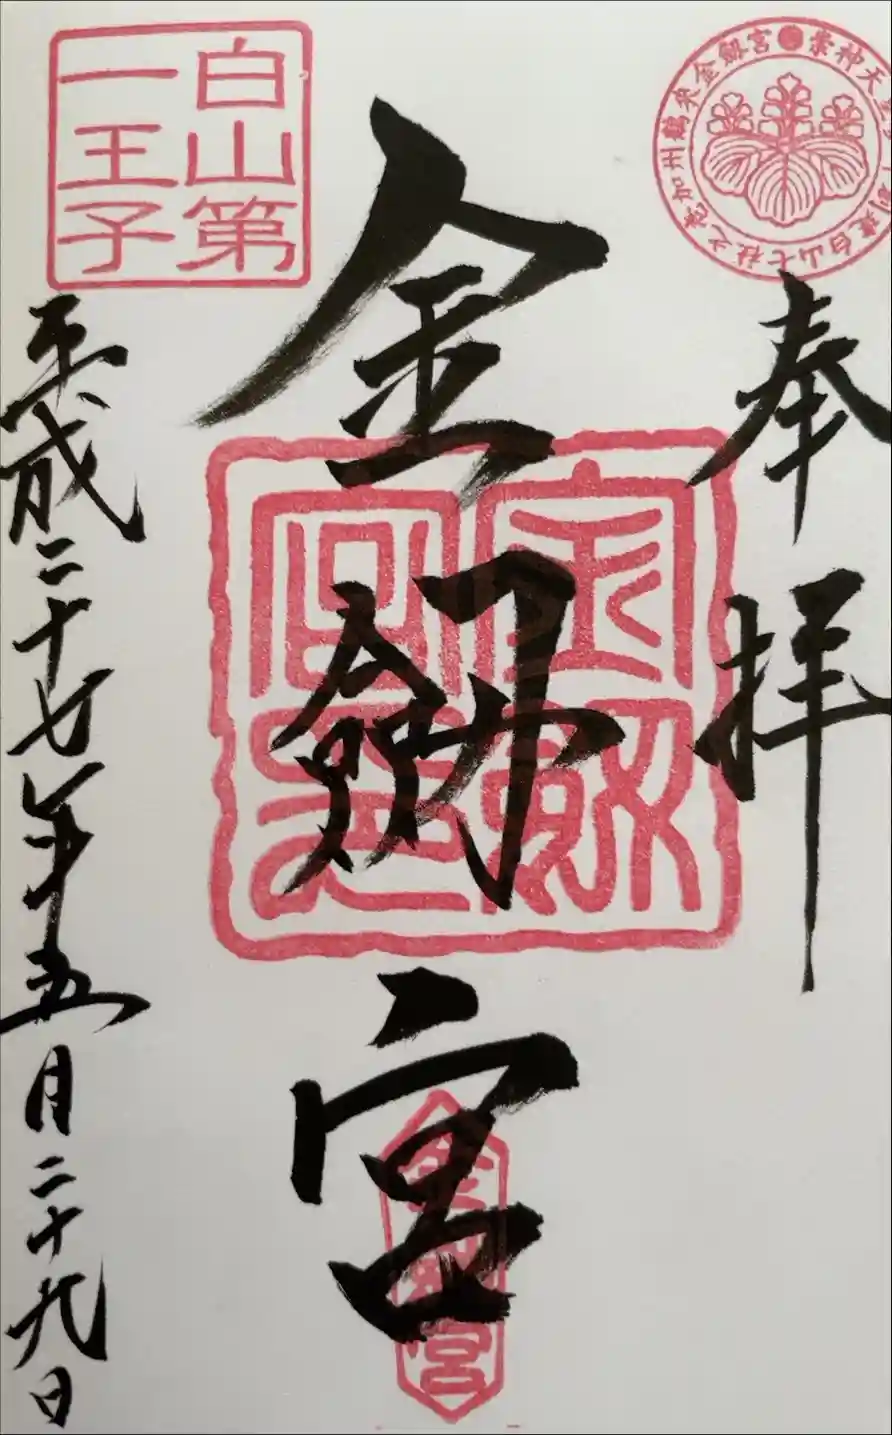 奉拝
金劔宮
金劔宮
白山第
一王子
平成二十七年五月二十九日